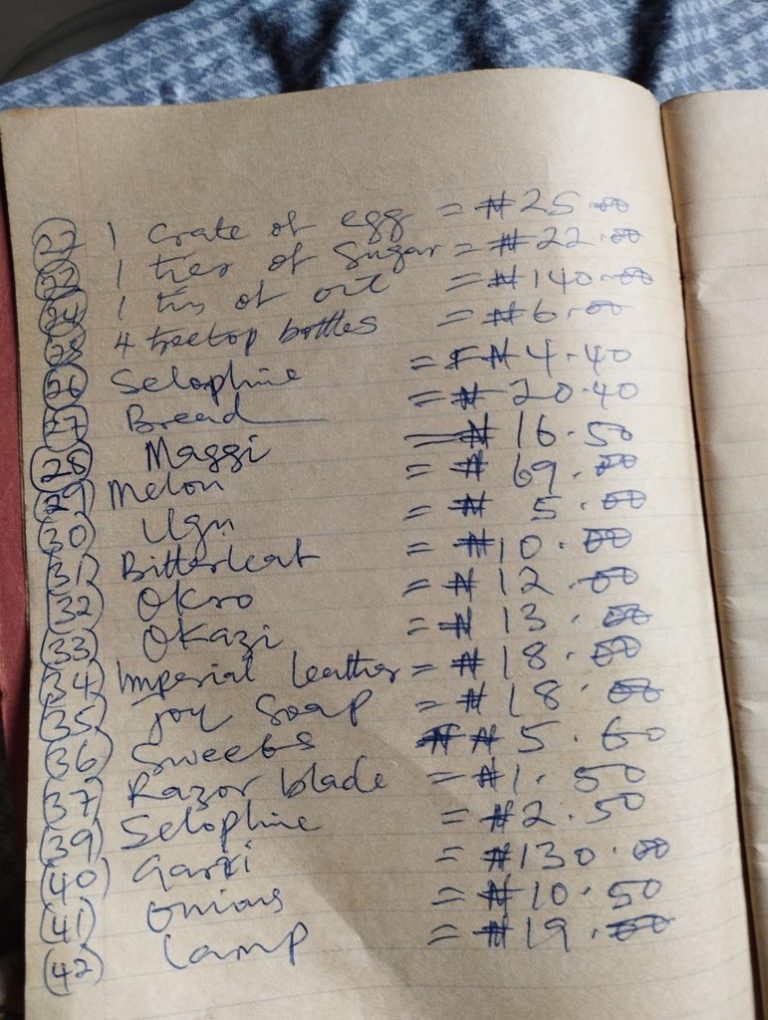 (22) 1 crate of egg = ₦25.00
(23) 1 ties of Sugar = ₦22.00
(24) 1 tin of oil = ₦140.00
(25) 4 treetop bottles = ₦6.00
(26) Selophine = ₦4.40
(27) Bread = ₦20.40
(28) Maggi = ₦16.50
(29) Melon = ₦69.00
(30) Ugu = ₦5.00
(31) Bitterleaf = ₦10.00
(32) Okro = ₦12.00
(33) Okazi = ₦13.00
(34) Imperial leather = ₦18.00
(35) Joy Soap = ₦18.00
(36) Sweets ₦5.60
(37) Razor blade = ₦1.50
(39) Selophine = ₦2.50
(40) Garri = ₦130.00
(41) Onions = ₦10.50
(42) Lamp = ₦19.00